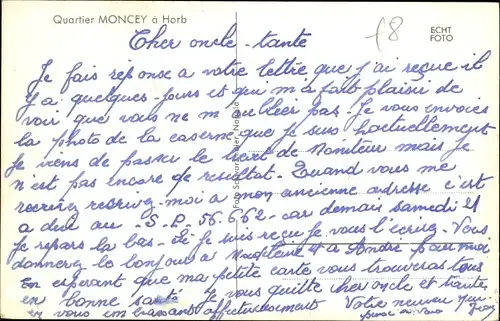 Quartier MONCEY à Horb
f8
ECHT
FOTO
Cher oncle - tante
Je fais réponse a votre lettre que j'ai reçue il
y a quelques jours et qui m'a fait plaisir de
voir que vous ne m'oubliez pas. Je vous envoies
la photo de la caserne que je suis hactuellement
Je viens de passer le test de Moniteur mais je
n'est pas encore de resultat. Quand vous me
recriez moi a mon ancienne adresse c'est
a dire au - S.P. 56.662 - car demais samedi 21
je repars la bas. Si je suis reçu je vous l'écrirez. Vous
donnerez le bonjour a Madeleine et a André pour moi
En esperant que ma petite carte vous trouveras tous
en bonne santé Je vous quitte cher oncle et tante,
en vous embrassant affectueusement Votre neveu qui
pense a vous
Foto Schwarzwälder